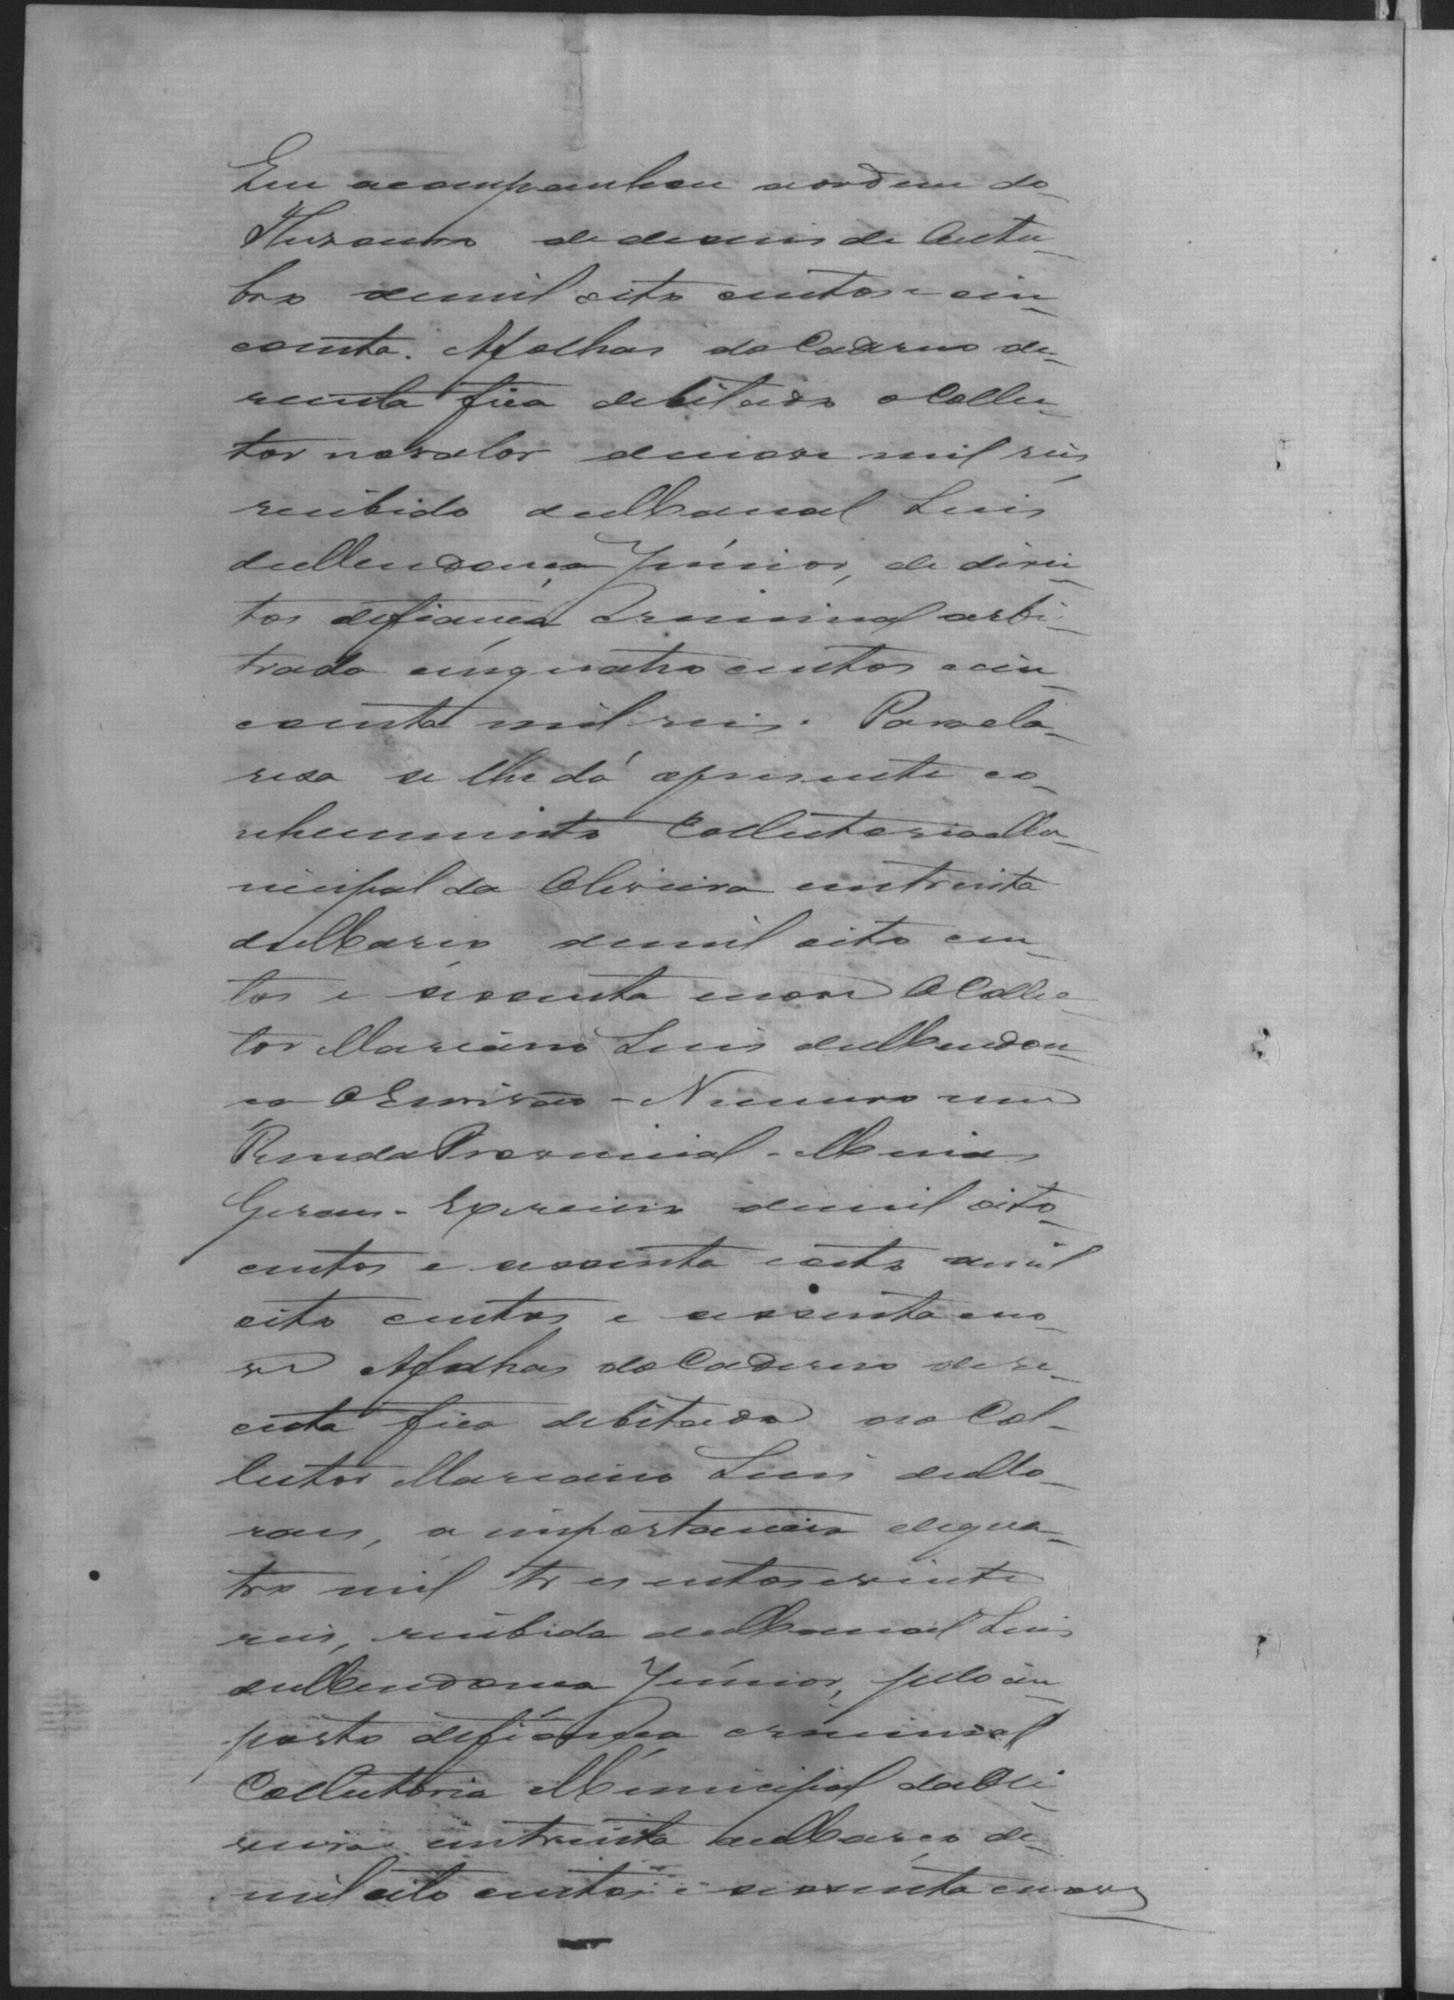 Em acompanhou a ordem do
Thesouro de deseseis de Outu-
bro demil oito centos e cin-
coenta. Afolhas do Caderno de-
renta fica debitado o Collec-
tor no valor de nove mil reis,
recibido de Manoel Luis
de Mendonça Júnior, de direi-
tos defiança Criminal arbi-
trada em quatro centos e cin-
coenta mil reis. Para cla-
resa se lhe dá opresente co-
nhecimento Collectoria Mu-
nicipal da Oliveira em trinta
de Março demil oito cen-
tos e secenta enove O Collec-
tor Marciano Luis de Mendon-
ça O Escrivão - Numero um
Renda Provincial - Minas
Geraes - Exercicio demil oito-
centos e secenta eoito a mil
oito centos e secenta eno-
ve Afolhas do Caderno de re-
ceita fica debitada ao Col-
lector Marciano Luis de Mo-
raes, a importancia dequa-
tro mil tresentos e vinte
reis, recibida de Manoel Luis
de Mendonça Júnior, pelo im-
posto defiança criminal
Collectoria Municipal da Oli-
veira em trinta de Março de
mil oito centos e secenta enove